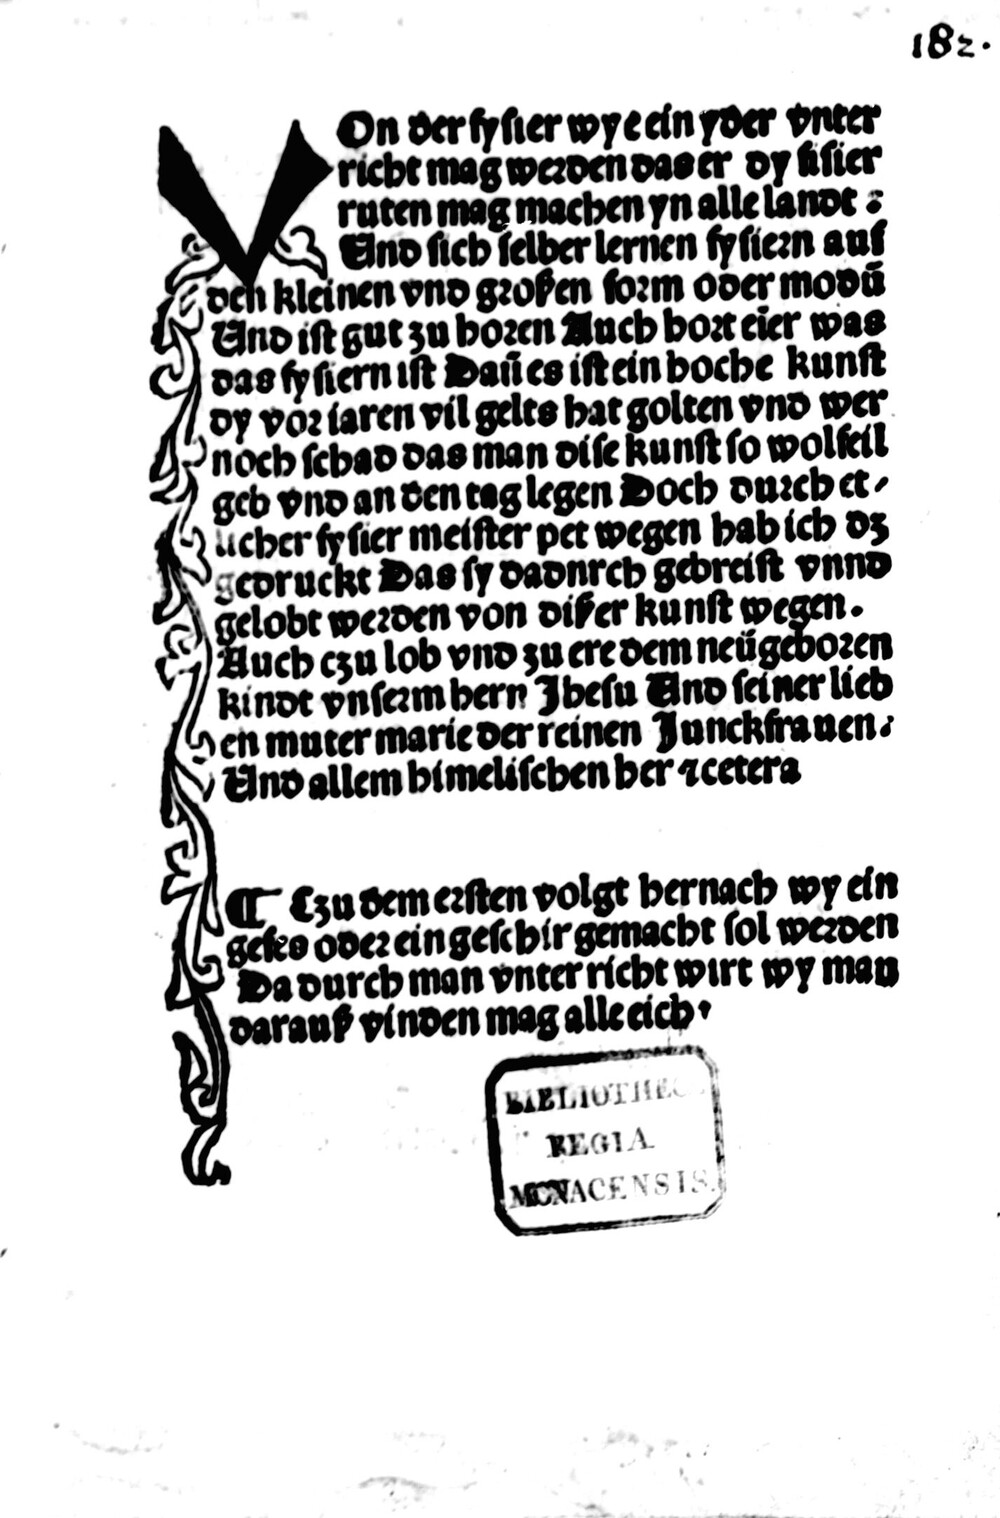 182.
VOn der fysier wye ein yder vnter
richt mag werden das er dy fisier
ruten mag machen yn alle landt :
Und sich selber lernen fysiern auf
den kleinen vnd großen form oder modū
Und ist gut zu horen Auch hort eūer was
das fysiern ist Daū es ist ein hoche kunst
dy vor iaren vil gelts hat golten vnd wer
noch schad das man dise kunst so wolfeil
geb vnd an den tag legen Doch durch et⸗
licher fysier meister pet wegen hab ich dz
gedruckt Das sy dadnrch gebreist vnnd
gelobt werden von dißer kunst wegen.
Auch czu lob vnd zu ere dem neügeboren
kindt vnserm hern Jhesu Und seiner lieb
en muter marie der reinen Junckfrauen:
Und allem himelischen her ⁊cetera
¶ Czu dem ersten volgt hernach wy ein
gefes oder ein geschir gemacht sol werden
Da durch man vnterricht wirt wy man
darauß vinden mag alle eich
BIBLIOTHECA
REGIA
MONACENSIS.